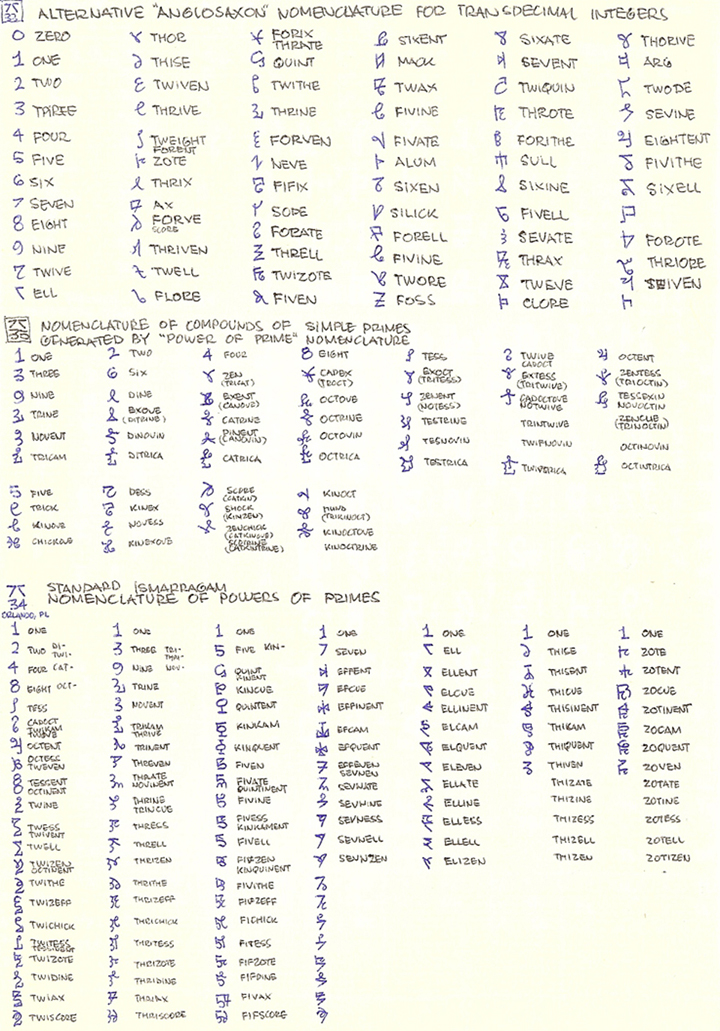 ALTERNATIVE "ANGLOSAXON" NOMENCLATURE FOR TRANSDECIMAL INTEGERS
0 ZERO
1 ONE
2 TWO
3 THREE
4 FOUR
5 FIVE
6 SIX
7 SEVEN
8 EIGHT
9 NINE
TWIVE
ELL
THOR
THISE
TWIVEN
THRIVE
TWEIGHT
FORENT
ZOTE
THRIX
AX
FORVE
SCORE
THRIVEN
TWELL
FLORE
FORIX
THRATE
QUINT
TWITHE
THRINE
FORVEN
NEVE
FIFIX
SOPE
FORATE
THRELL
TWIZOTE
FIVEN
SIXENT
MACK
TWAX
FIVINE
FIVATE
ALUM
SIXEN
SILICK
FORELL
FIVINE
TWORE
FOSS
SIXATE
SEVENT
TWIQUIN
THROTE
FORITHE
SULL
SIXINE
FIVELL
SEVATE
THRAX
TWEVE
CLORE
THORIVE
ARG
TWODE
SEVINE
EIGHTENT
FIVITHE
SIXELL
FOROTE
THRIORE
NOMENCLATURE OF COMPOUNDS OF SIMPLE PRIMES
GENERATED BY "POWER OF PRIME" NOMENCLATURE
1 ONE
3 THREE
9 NINE
TRINE
NOVENT
TRICAM
2 TWO
6 SIX
DINE
EXOVE
(DITRINE)
DINOVIN
DITRICA
4 FOUR
ZEN
(TRICAT)
EXENT
(CANOVE)
CATRINE
(CANOVIN)
CATRICA
8 EIGHT
CAPEX
(TROCT)
OCTOVE
OCTRINE
OCTOVIN
OCTRICA
TESS
EXOCT
(TRITESS)
ZENENT
(NOTESS)
TESTRINE
TESNOVIN
TESTRICA
TWIVE
CADOCT
EXTESS
(TRITWIVE)
CADOCTOVE
NOTWIVE
TRINTWIVE
TWIFNOVIN
TWIVERICA
OCTENT
ZENTESS
(TRIOCTIN)
TESSEXIN
NOVOCTIN
(TRINOLTIN)
OCTINOVIN
OCTINTRICA
5 FIVE
TRICK
KINOVE
CHICKOVE
DESS
KINEX
NOVESS
KINEXOVE
SCORE
(CATKIN)
SHOCK
(KINZEN)
ZENCHICK
(CATKINOVE)
SCOTRINE
(CATKINTRINE)
KINOCT
(TRIKINOCT)
KINOCTOVE
KINOCTRINE
34
STANDARD ISMARRAGAM
NOMENCLATURE OF POWERS OF PRIMES
ORLANDO, FL
1 ONE
2 TWO DI- TWI-
4 FOUR CAT-
8 EIGHT OCT-
TESS
CADOCT
TWIVE
OCTENT
OCTESS
TWEVEN
TESCENT
OCTINENT
TWINE
TWESS
TWIVENT
TWELL
TWIZEN
OCTINENT
TWITHE
TWIZEFF
TWICHICK
TWITESS
TWIZOTE
TWIDINE
TWIAX
TWISCORE
1 ONE
3 THREE TRI- THRI-
9 NINE NOV-
TRINE
NOVENT
TRIKAM
THRIVE
TRINENT
THREVEN
THRATE
NOVINENT
THRINE
TRINCUE
THRESS
THRELL
THRIZEN
THRITHE
THRIZEFF
THRICHICK
THRITESS
THRIZOTE
THRIDINE
THRIAX
THRISCORE
1 ONE
5 FIVE KIN-
QUINT
KINENT
KINCUE
QUINTENT
KINKAM
KINQUENT
FIVEN
FIVATE
QUINTINENT
FIVINE
FIVESS
KINKAMENT
FIVELL
FIFZEN
KINQUINENT
FIVITHE
FIFZEFF
FICHICK
FITESS
FIFZOTE
FIFDINE
FIVAX
FIFSCORE
1 ONE
7 SEVEN
EFFENT
EFCUE
EFFINENT
EFCAM
EFQUENT
EFFEVEN
SEVNEN
SEVNATE
SEVNINE
SEVNESS
SEVNELL
SEVNZEN
1 ONE
ELL
ELLENT
ELCUE
ELLINENT
ELCAM
ELQUENT
ELEVEN
ELLATE
ELLINE
ELLESS
ELLELL
ELIZEN
1 ONE
THISE
THISENT
THICUE
THISINENT
THIKAM
THIQUENT
THIVEN
THIZATE
THIZINE
THIZESS
THIZELL
THIZEN
1 ONE
ZOTE
ZOTENT
ZOCUE
ZOTINENT
ZOCAM
ZOQUENT
ZOVEN
ZOTATE
ZOTINE
ZOTESS
ZOTELL
ZOTIZEN